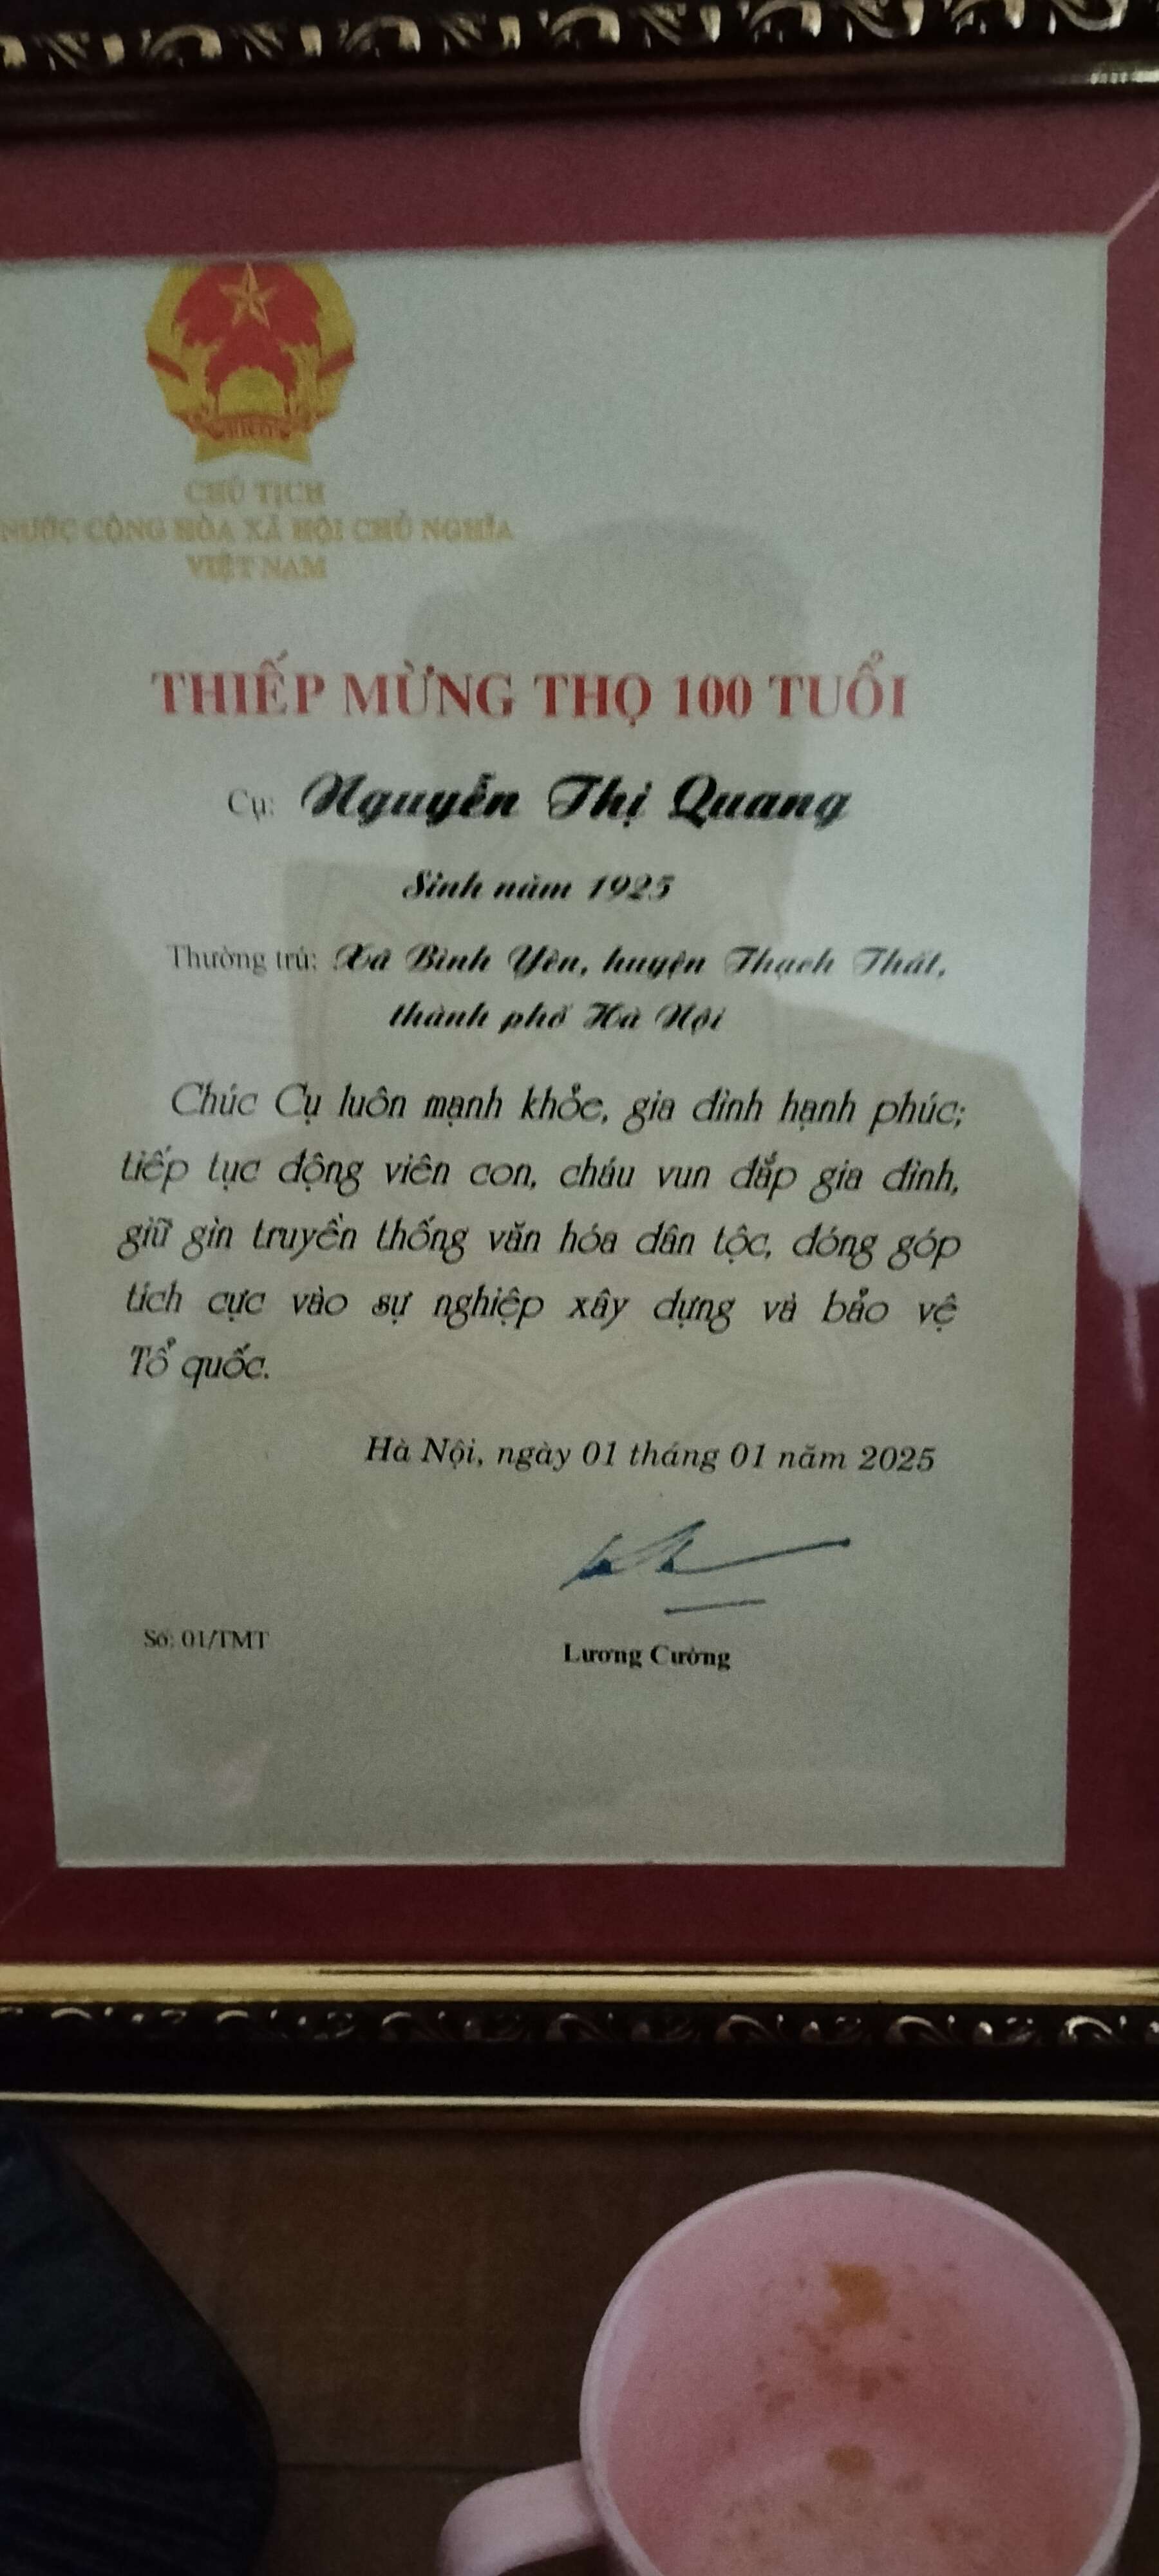 CHỦ TỊCH
NƯỚC CỘNG HÒA XÃ HỘI CHỦ NGHĨA
VIỆT NAM
THIẾP MỪNG THỌ 100 TUỔI
Cụ: Nguyễn Thị Quang
Sinh năm 1925
Thường trú: Xã Bình Yên, huyện Thạch Thất,
thành phố Hà Nội
Chúc Cụ luôn mạnh khỏe, gia đình hạnh phúc;
tiếp tục động viên con, cháu vun đắp gia đình,
giữ gìn truyền thống văn hóa dân tộc, đóng góp
tích cực vào sự nghiệp xây dựng và bảo vệ
Tổ quốc.
Hà Nội, ngày 01 tháng 01 năm 2025
Số: 01/TMT
Lương Cường